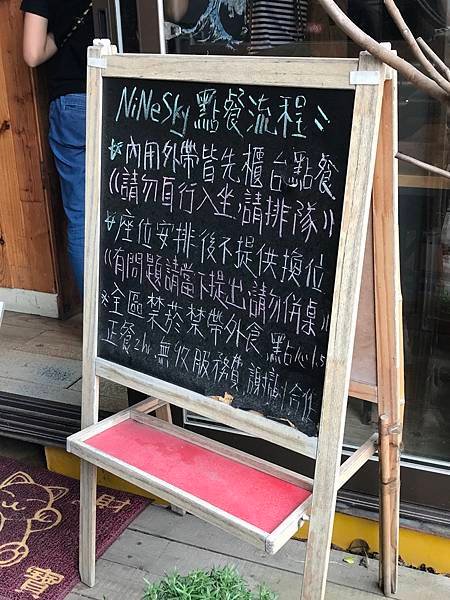 NiNeSky 點餐流程
內用外帶皆先櫃台點餐
(請勿自行入坐,請排隊)
座位安排後不提供換位
(有問題請當下提出,請勿併桌)
※全區禁菸禁帶外食 點心1.5
正餐2hr 無收服務費 謝謝合作
寶